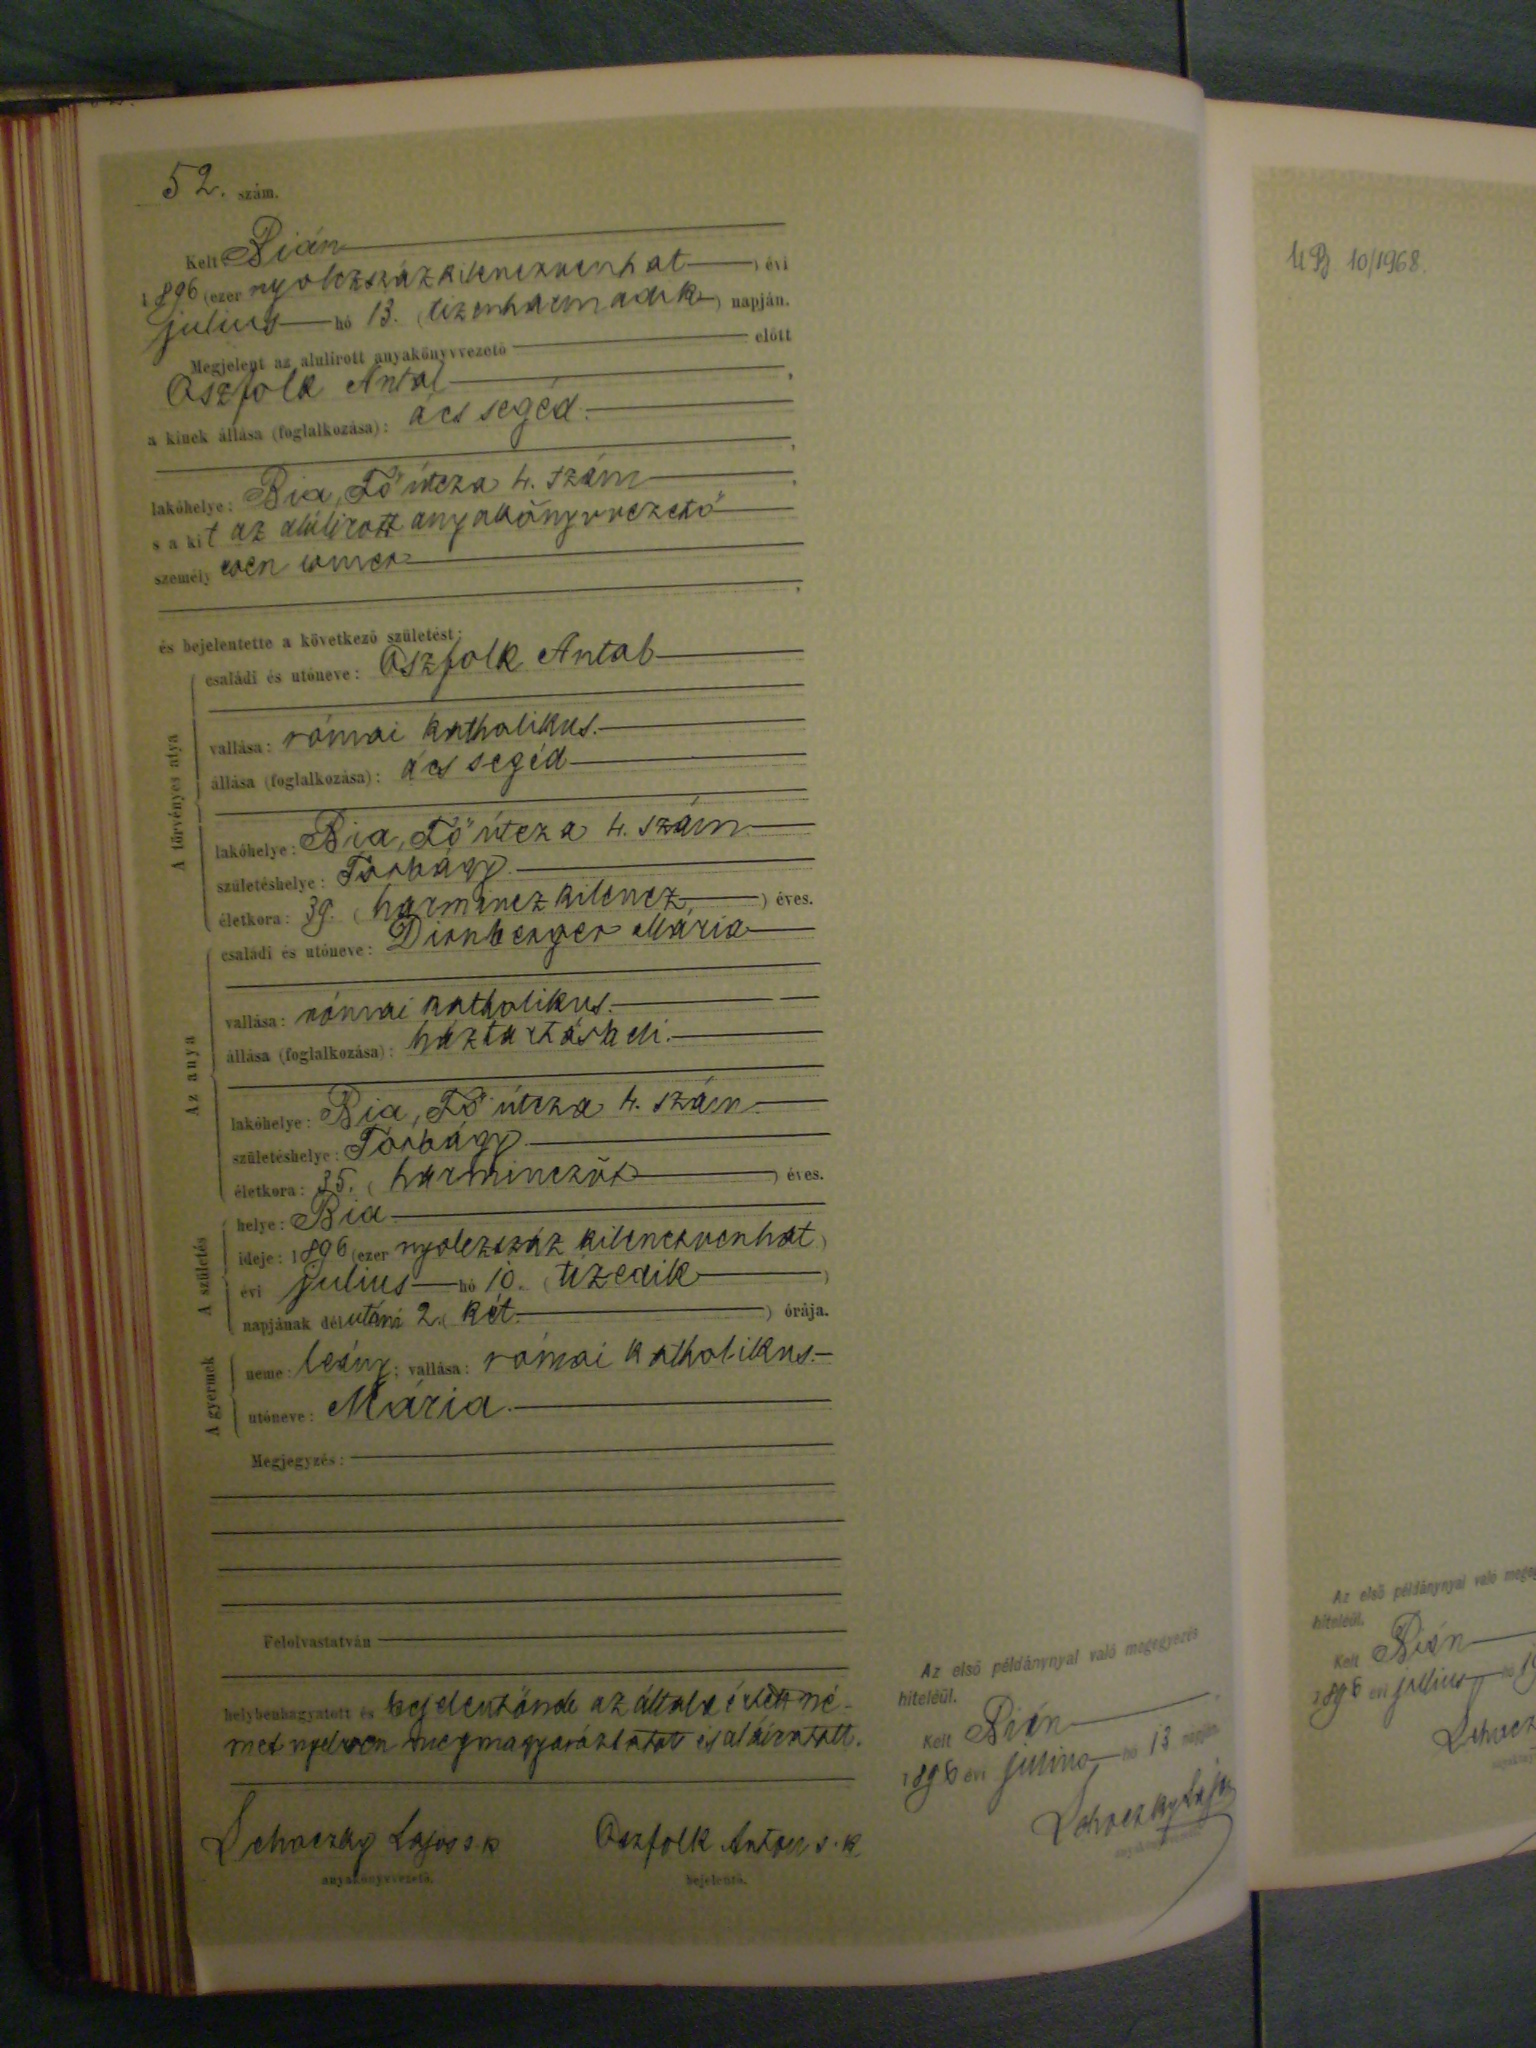 52. szám.
Kelt Bián
1896 (ezer nyolczszázkilenczvenhat) évi
julius hó 13. (tizenharmadik) napján.
Megjelent az alulirott anyakönyvvezető előtt
Oszfolk Antal,
a kinek állása (foglalkozása): ács segéd.
lakóhelye: Bia, Fő útcza 4. szám,
s a kit az alúlirott anyakönyvvezető
személyesen ismer,
és bejelentette a következő születést:
A törvényes atya
családi és utóneve: Oszfolk Antal
vallása: római katholikus.
állása (foglalkozása): ács segéd
lakóhelye: Bia, Fő útcza 4. szám
születéshelye: Torbágy.
életkora: 39. (harminczkilencz) éves.
Az anya
családi és utóneve: Dirnberger Mária
vallása: római katholikus.
állása (foglalkozása): háztartásbeli.
lakóhelye: Bia, Fő útcza 4. szám.
születéshelye: Torbágy.
életkora: 35. (harminczöt) éves.
A születés
helye: Bia
ideje: 1896 (ezer nyolczszáz kilenczvenhat)
évi julius hó 10. (tizedik)
napjának délutáni 2. (két) órája.
A gyermek
neme: leány; vallása: római katholikus.
utóneve: Mária.
Megjegyzés:
Felolvastatván
helybenhagyatott és bejelentőnek az általa értett né-
met nyelven megmagyaráztatott és aláiratott.
Schoczky Lajos s. k
anyakönyvvezető.
Oszfolk Anton s. k
bejelentő.
Az első példánynyal való megegyezés
hiteléül.
Kelt Bián
1896 évi julius hó 13 napján.
Schoczky Lajos
anyakönyvvezető.
10/1968.
Az első példánynyal való
hiteléül.
Kelt Bián
1896 évi julius hó